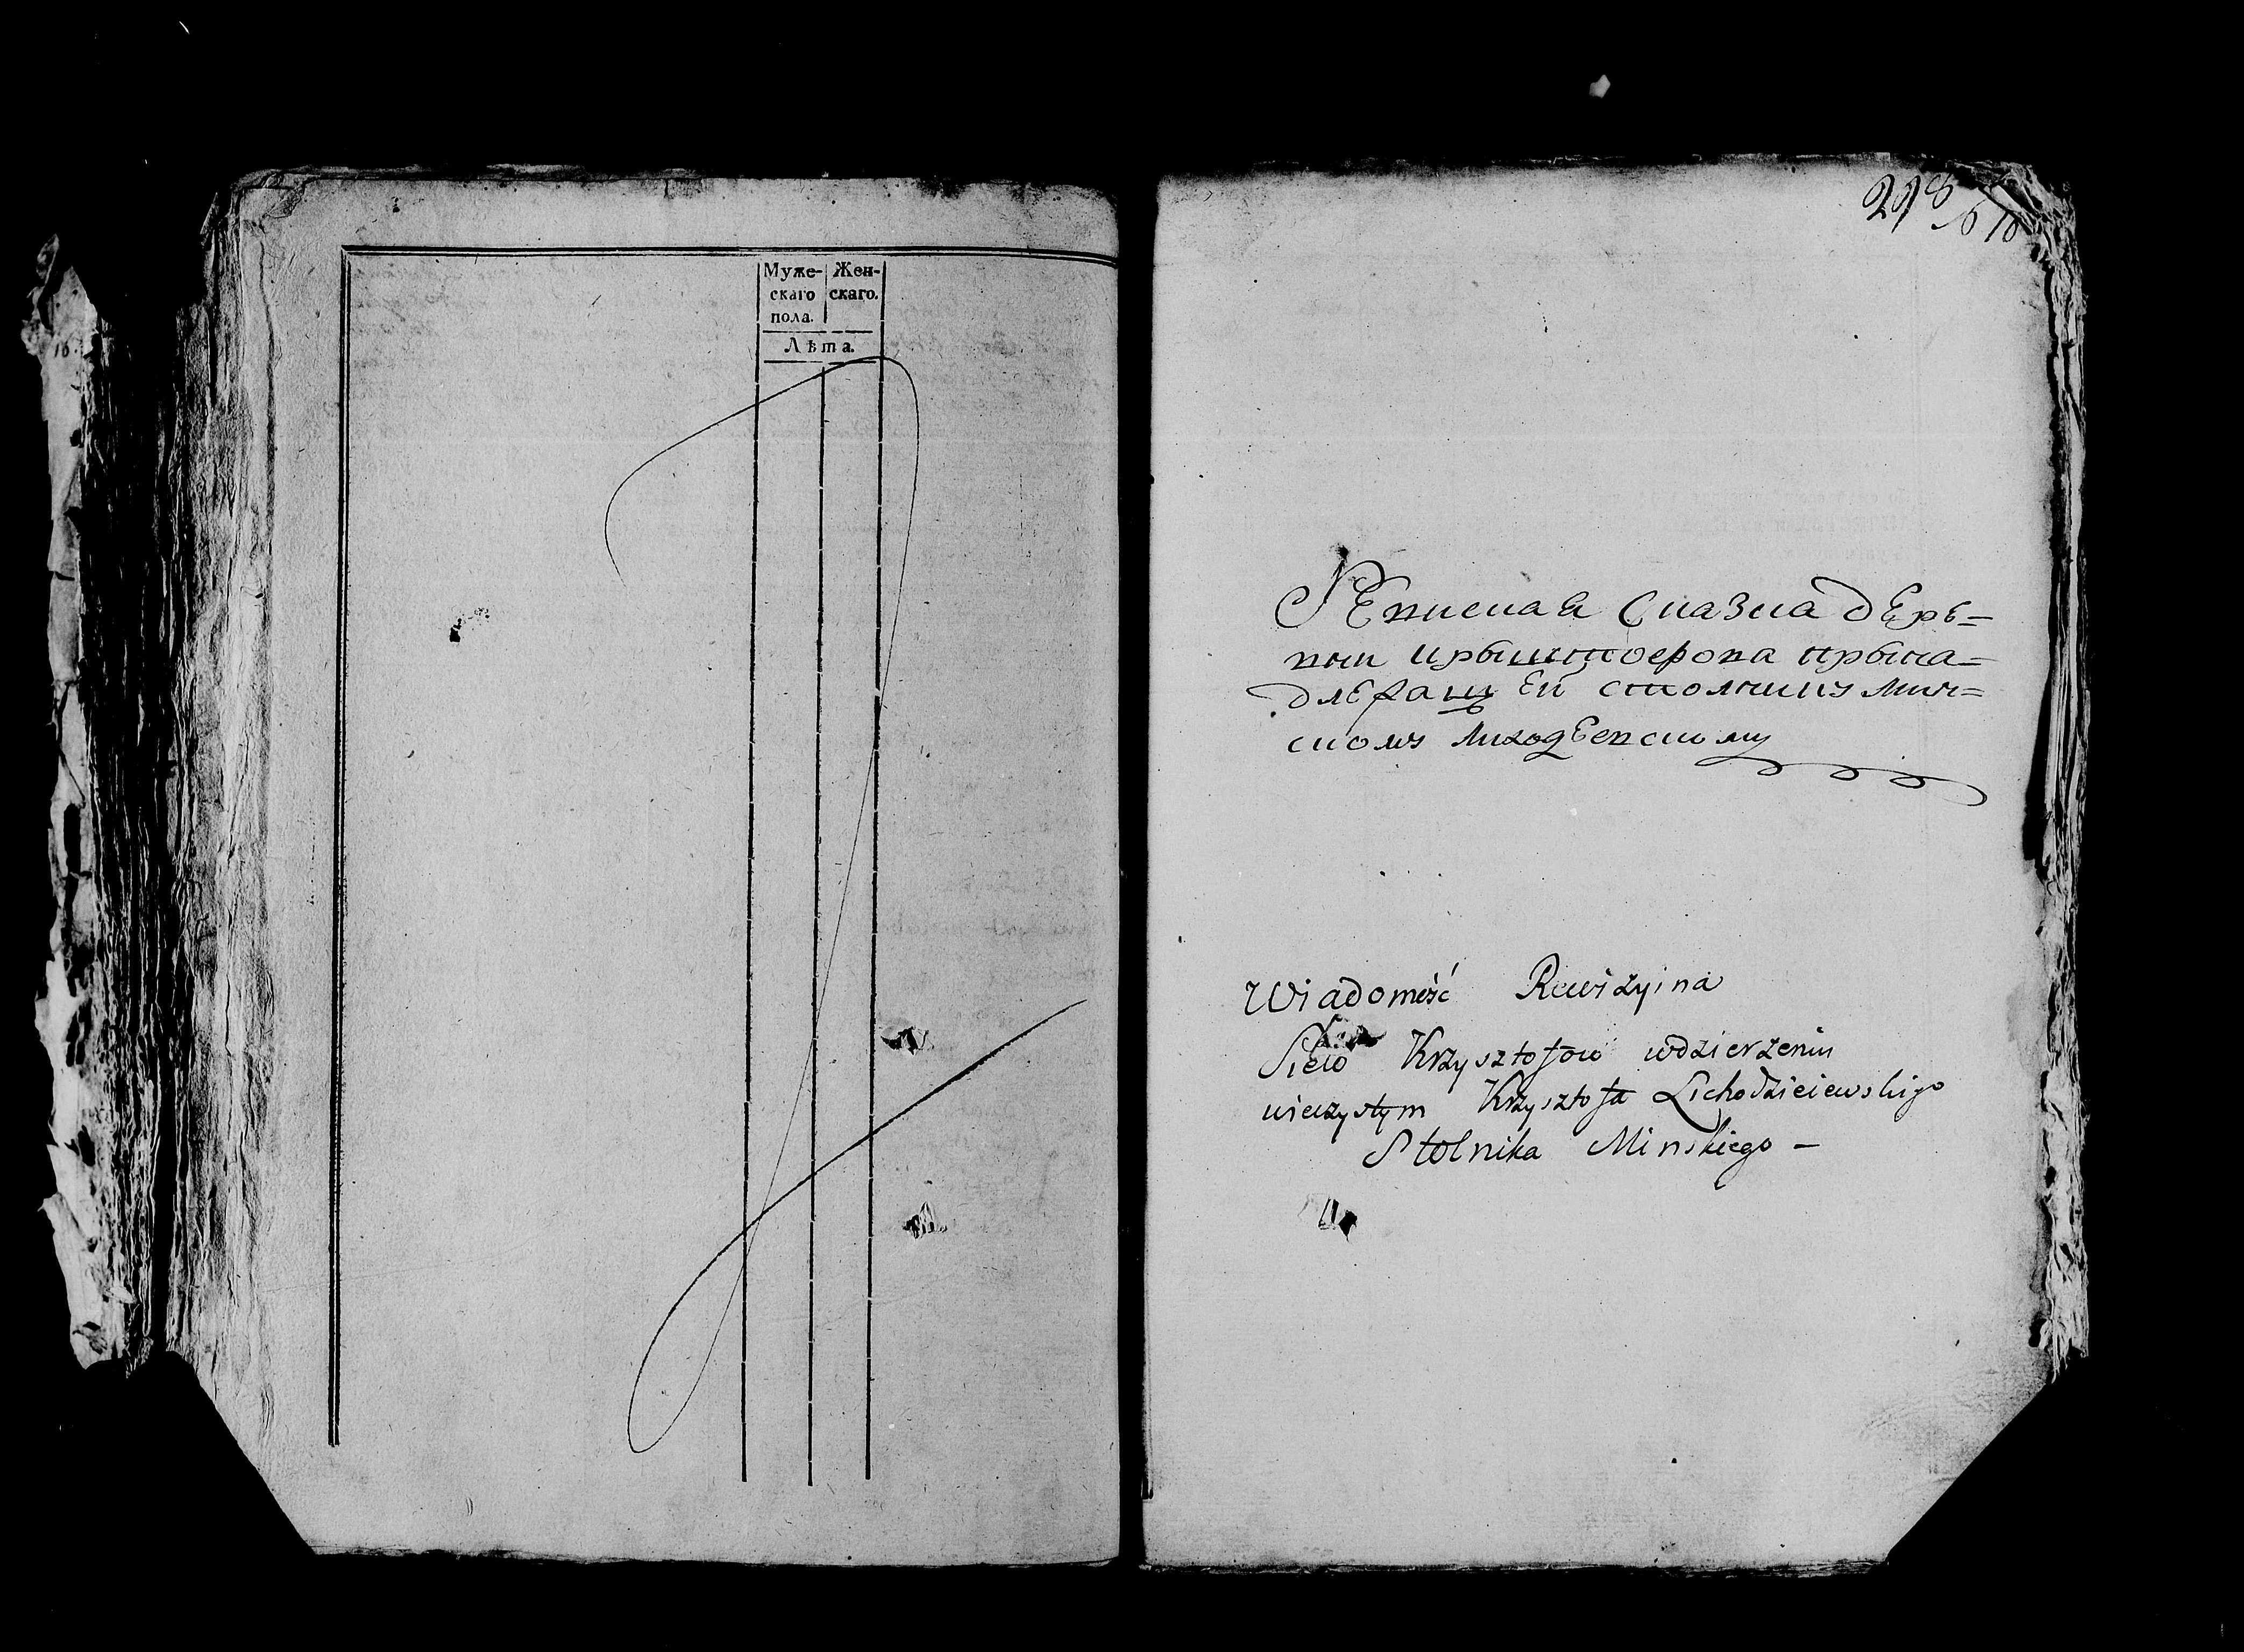 Муже-
скаго
пола.
Жен-
скаго.
Лѣта.
218
Ревискаа Сказка дерѣ-
вни Крыштоѳова прына-
длежащей столнику мин-
скому Лиходѣевскому
Wiadomość Rewizyina
Krzysztofow w dzierzeniu
wieczystym Krzysztofa Lichodzieiewskigo
Stolnika Minskiego –